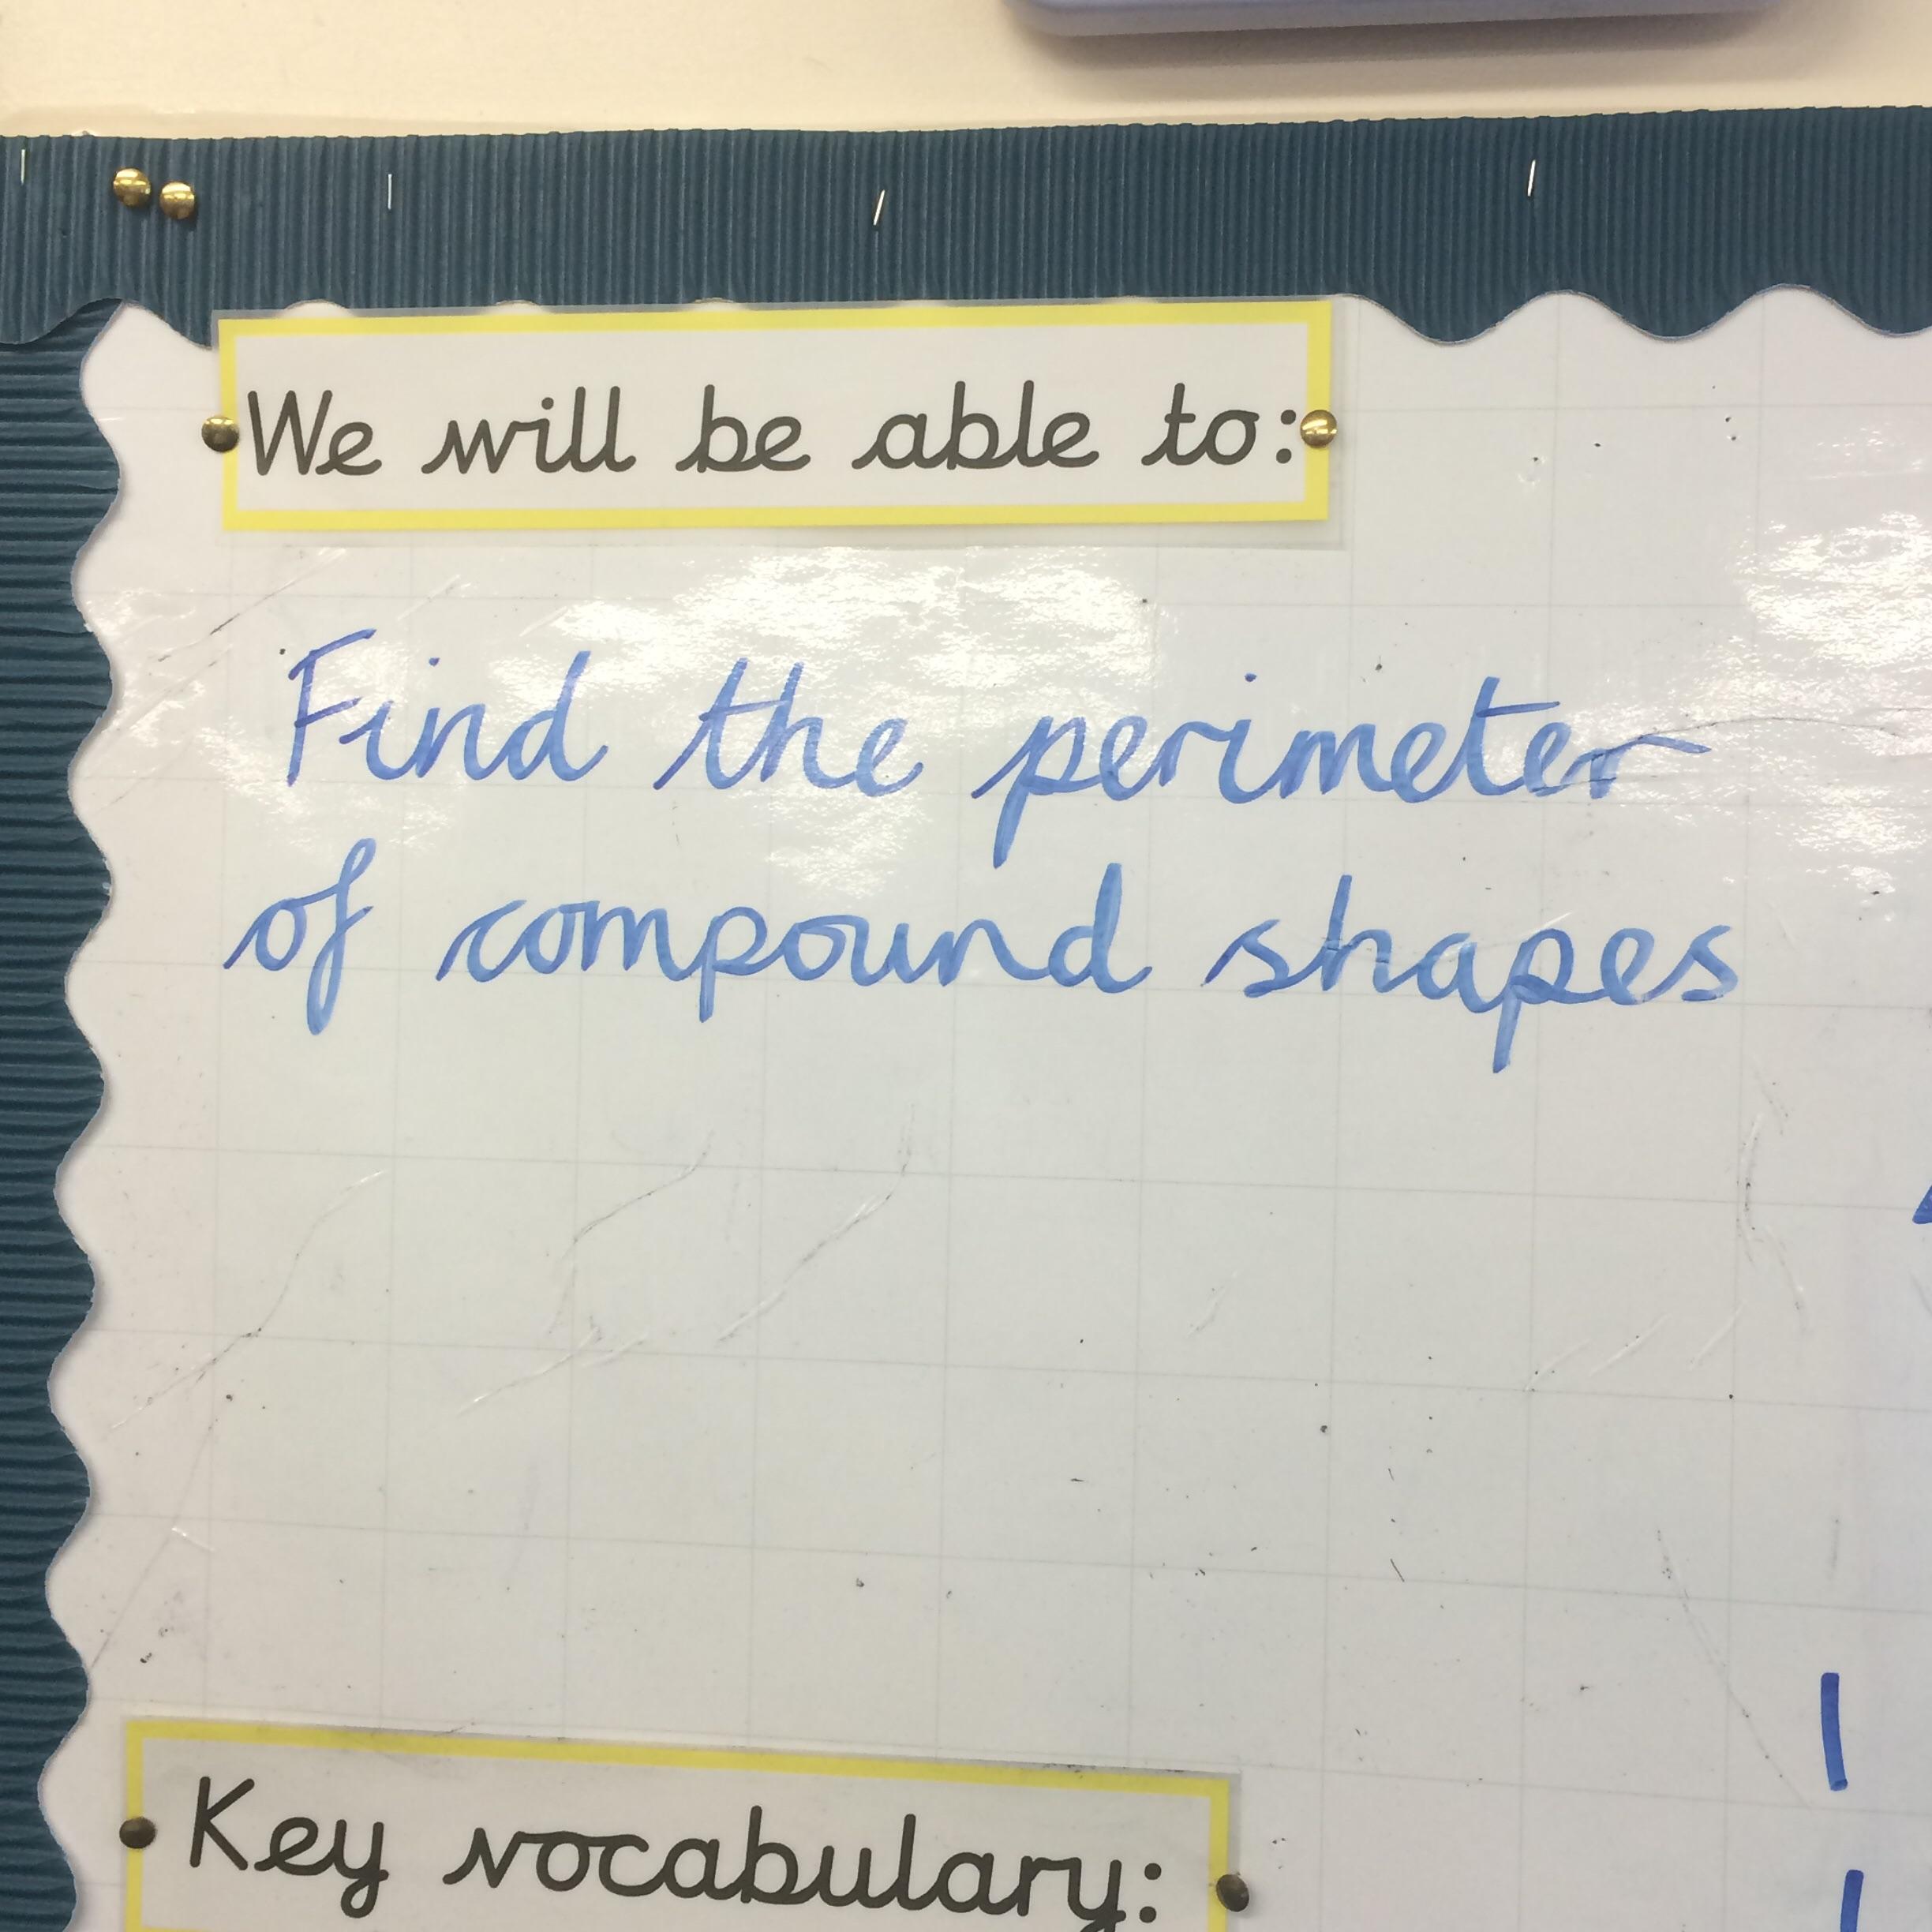 We will be able to:
Find the perimeter
of compound shapes
Key vocabulary: